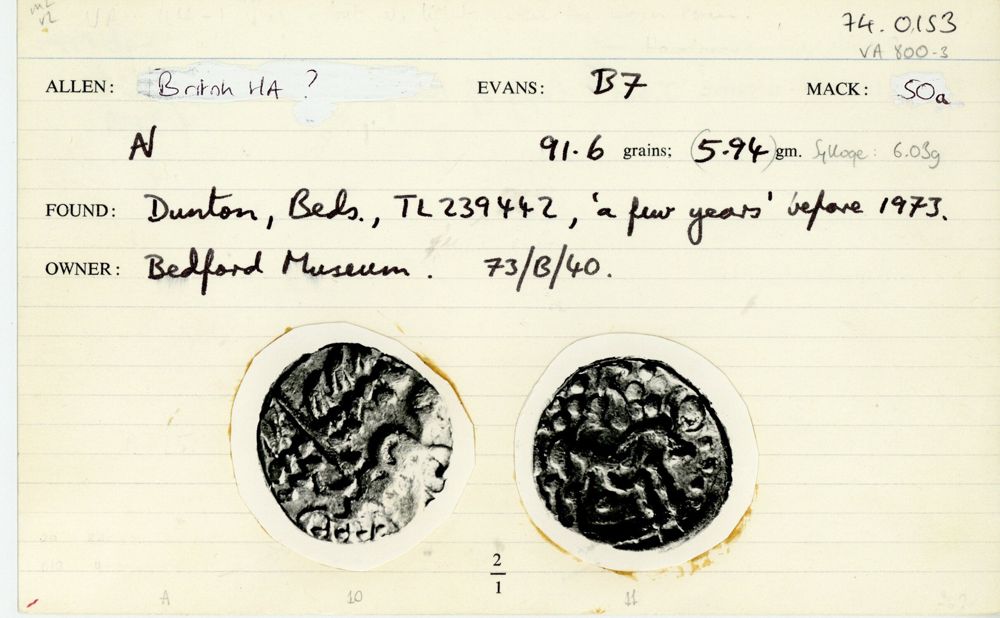 74.0153
VA 800-3
ALLEN: British HA ? EVANS: B7 MACK: 50a
AV 91.6 grains; (5.94) gm. Sylloge: 6.03g
FOUND: Dunton, Beds., TL 239442, 'a few years' before 1973.
OWNER: Bedford Museum. 73/B/40.
2
1
A 10 11